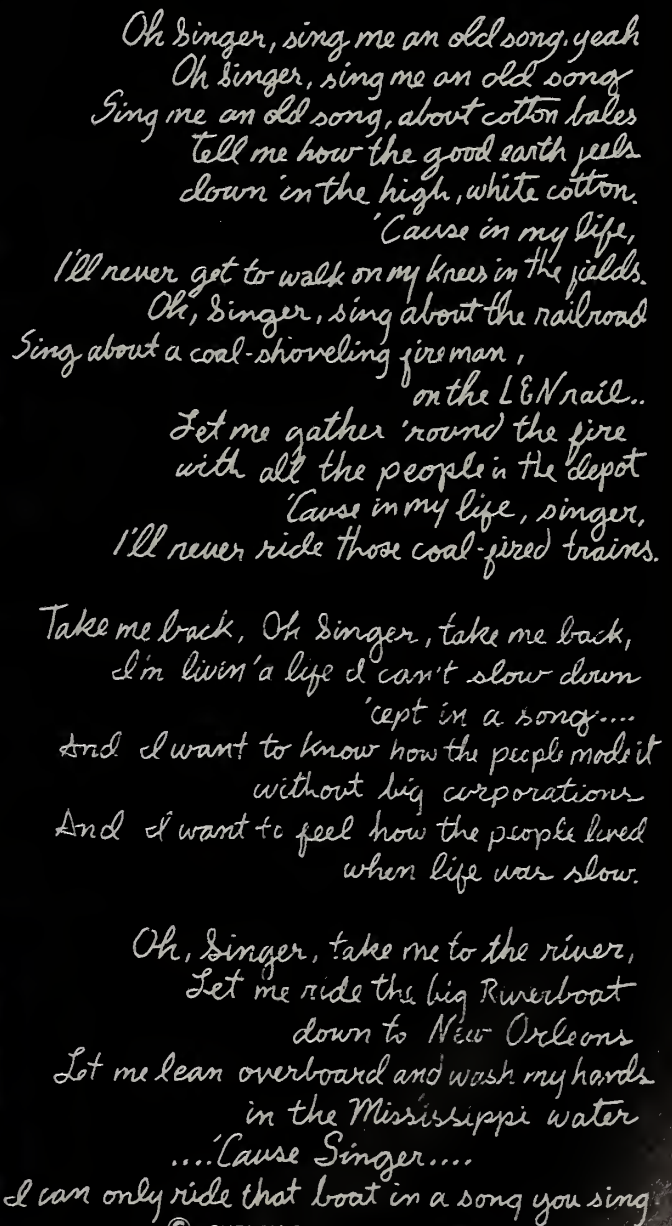 Oh Singer, sing me an old song. yeah
Oh Singer, sing me an old song
Sing me an old song, about cotton bales
tell me how the good earth feels
down in the high, white cotton.
'Cause in my life,
I'll never get to walk on my knees in the fields.
Oh, Singer, sing about the railroad
Sing about a coal-shoveling fireman,
on the L&N rail..
Let me gather 'round the fire
with all the people in the depot
'Cause in my life, singer,
I'll never ride those coal-fired trains.
Take me back, Oh Singer, take me back,
I'm livin' a life I can't slow down
'cept in a song....
And I want to know how the people made it
without big corporations
And I want to feel how the people lived
when life was slow.
Oh, Singer, take me to the river,
Let me ride the big Riverboat
down to New Orleans
Let me lean overboard and wash my hands
in the Mississippi water
....'Cause Singer....
I can only ride that boat in a song you sing
©